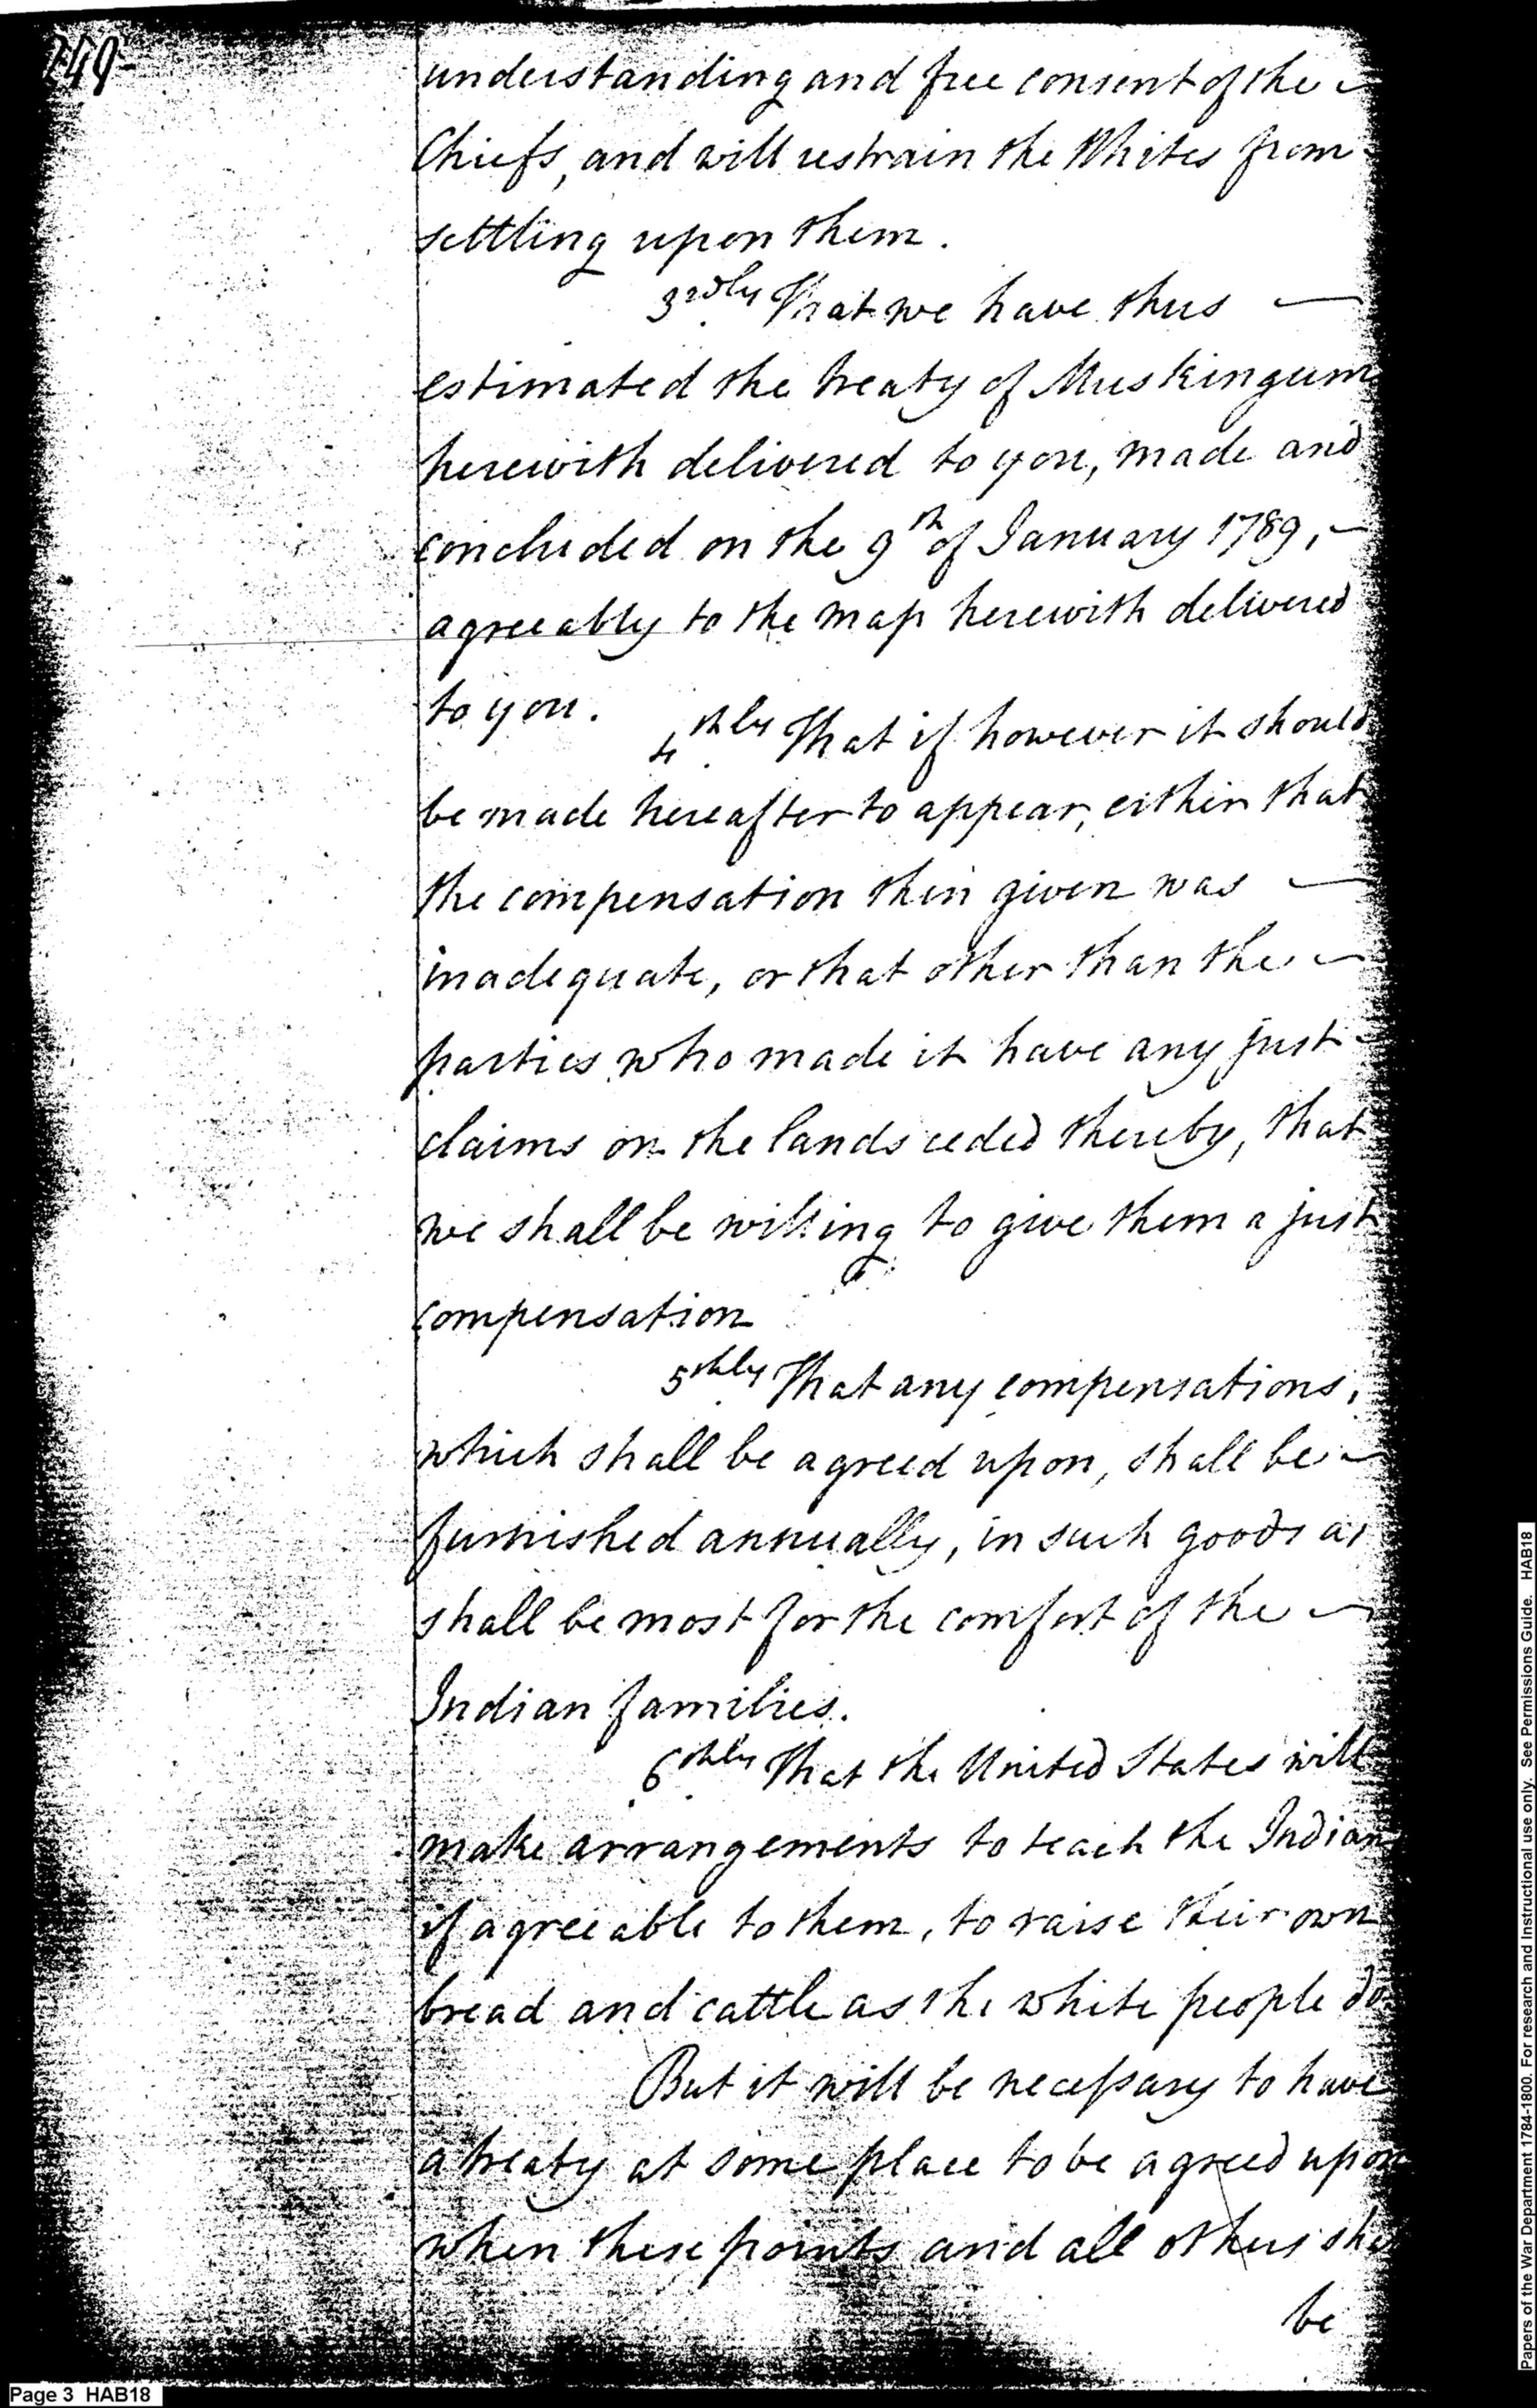 249
understanding and free consent of the
Chiefs, and will restrain the Whites from
settling upon them.
3rdly That we have thus
estimated the treaty of Muskingum
herewith delivered to you, made and
concluded on the 9th of January 1789,
agreeably to the map herewith delivered
to you.
4thly That if however it should
be made hereafter to appear, either that
the compensation then given was
inadequate, or that other than the
parties who made it have any just
claims on the lands ceded thereby, that
we shall be willing to give them a just
compensation
5thly That any compensations,
which shall be agreed upon, shall be
furnished annually, in such goods as
shall be most for the comfort of the
Indian families.
6thly That the United States will
make arrangements to teach the Indians
if agreeable to them, to raise their own
bread and cattle as the white people do.
But it will be necessary to have
a treaty at some place to be agreed upon
when these points and all others
be
Page 3 HAB18
Papers of the War Department 1784-1800. For research and instructional use only. See Permissions Guide. HAB18